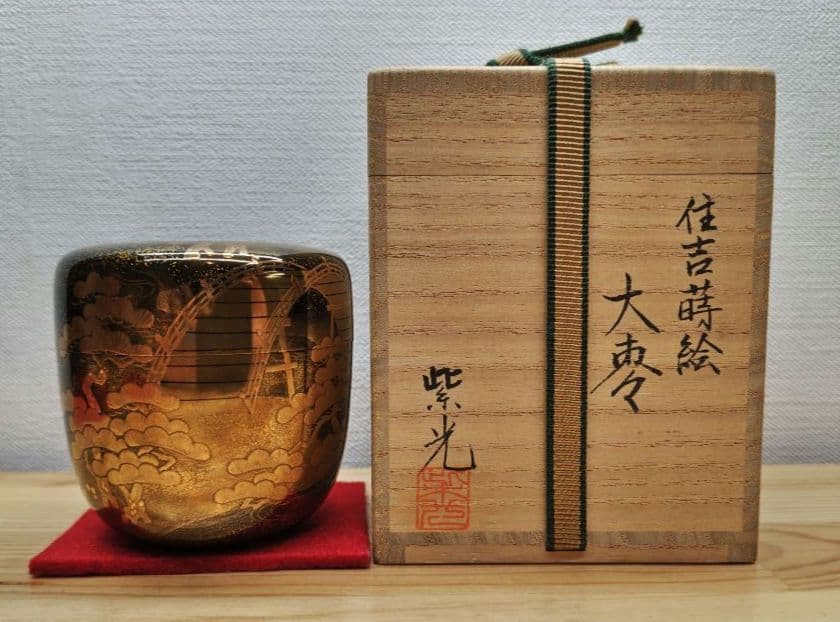 住吉蒔絵
大棗
紫光